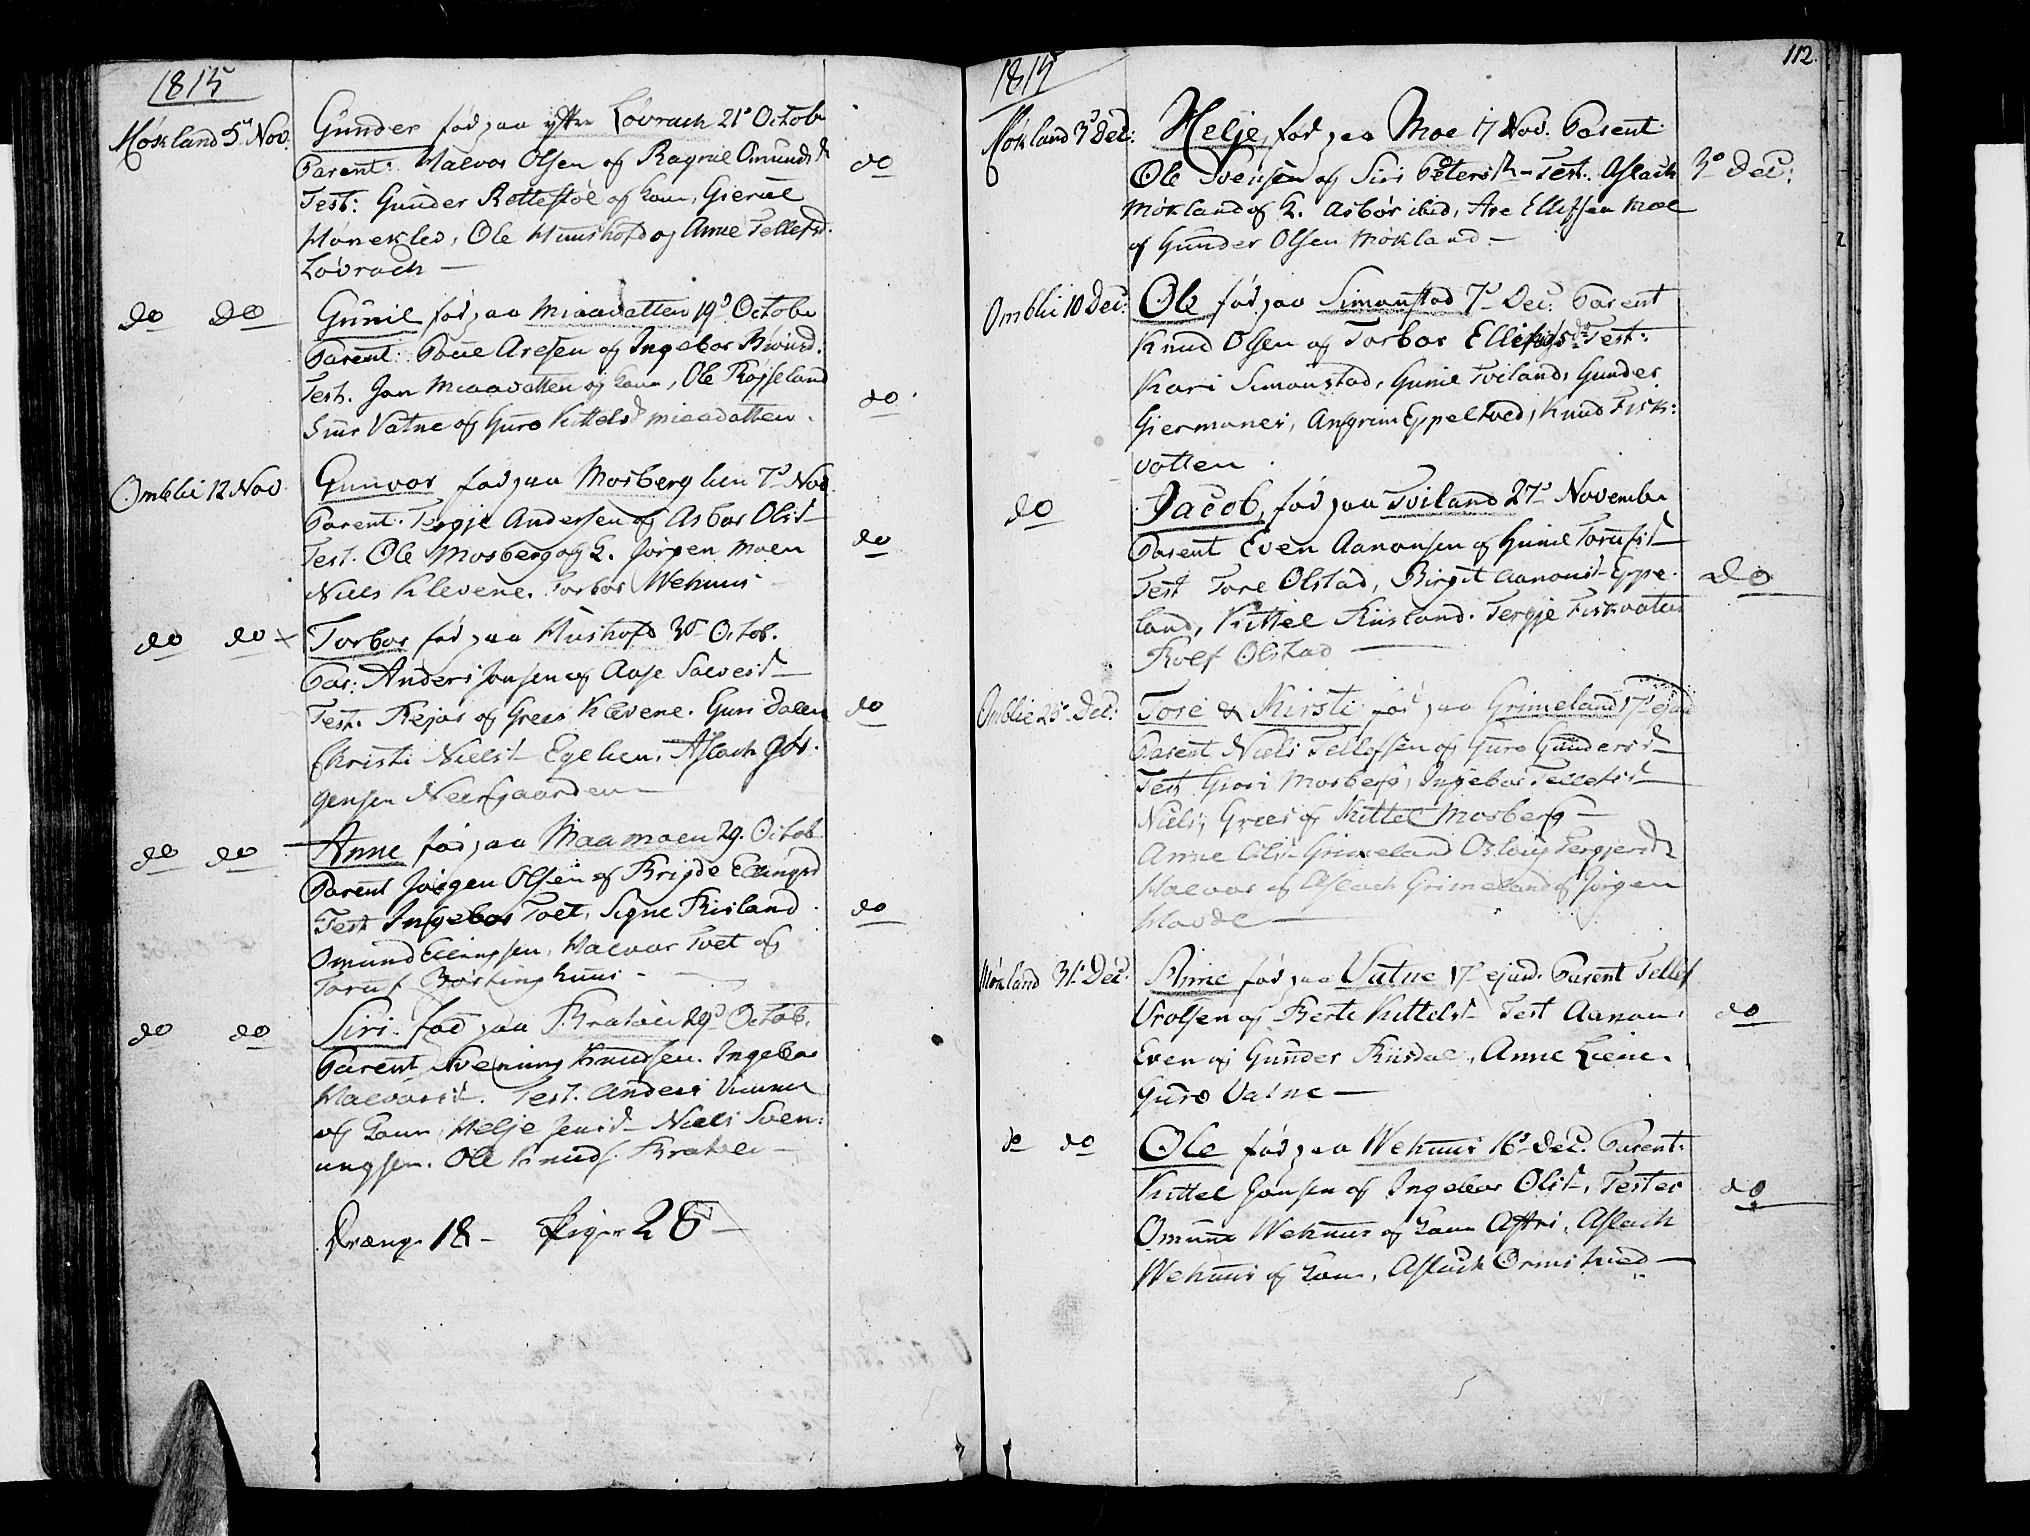 1815
Møkland 5t Nov. Gunder fød paa yttre Løvrach 21d Octob
Parent: Halvor Olsen og Ragnil Omundsd
do
Test: Gunder Rettestøl og Kone, Gieruel
Hønekled, Ole Huushofd og Anne Tellefsd.
Løvrach —
do do Gunil fød paa Miaavatten 19d Octobr
Parent: Povel Aresen og Ingebor Øvindsd.
Test. Jon Miaavatten og Kone, Ole Røjseland
do
Siur Vatne og Guro Kittelsd Miaavatten.
Omblie 12 Nov. Gunvor fød paa Mosberglien 7d Nov
Parent. Tergje Andersen og Asbor Olsd
Test. Ole Mosberg og K. Jørgen Moen
do
Niels Klevene. Torbor Wehuus
do do Torbor fød paa Hushofd 30 Octob.
Par: Anders Jonsen og Aase Salvesd
Test. Rejar og Grees Klevene. Guri Dalen
do
Christi Nielsd Egelien. Aslach Jør-
gensen Neergaarden —
do do Anne fød paa Maamoen 29. Octob
Parent Jørgen Olsen og Brigde Ellingsd
Test Ingebor Tvet, Signe Risland
do
Omund Ellingsen, Halvor Tvet og
Toruf Børtinghuus —
do do Siri fød paa Kratelie 29d Octob.
Parent Svenung Knudsen. Ingebor
Halvorsd. Test. Anders Uvann
og Kone, Helje Jensd Niels Sven:
ungsen. Ole Knuds. Kratelie —
Drenge 18 — Piger 28 —
1815
112.
Møkland 3d Dec: Helje, fød paa Moe 17 Nov. Parent
Ole Svensen og Siri Petersd — Test. Aslach
3d Dec:
Møkland og K. Asbor ibid, Are Ellefsen Moe
og Gunder Olsen Møkland —
Omblie 10 Dec: Ole fød paa Simonstad 7d Dec: Parent
Knud Olsen og Torbor Ellefsd. Test:
Kari Simonstad, Gunil Tveland, Gunder
Giermones, Asgrim Eppeltved, Knud Fisk:
vatten.
do Jacob, fød paa Tviland 27d November
Parent Even Aanonsen og Gunil Torufsd
Test Tore Olstad, Birgit Aanonsd Eppe-
do
land, Kittel Risland. Tergje Fiskvaten
Rolf Olstad —
Omblie 25d Dec: Tore & Kirsti fød paa Grimeland 17d ejusd
Parent Niels Tellefsen og Guro Gundersd
Test Guri Mosberg, Ingebor Tellefsd
Niels, Grees og Kittel Mosberg —
Anne Olsd Grimeland Oslaug Tergjersd
Halvor og Aslach Grimeland og Jørgen
Havde —
Møkland 31d Dec: Anne fød paa Vatne 17d ejusd. Parent Tellef
Urolsen og Berte Kittelsd Test Aanon
do
Even og Gunder Riisdal, Anne Liene,
Guro Vatne —
do do Ole fød paa Wehuus 16d Dec. Parent:
Kittel Jonsen og Ingebor Olsd, Testes
do
Omund Wehuus og Kone Astri, Aslach
Wehuus og Kone, Aslach Ormstved —